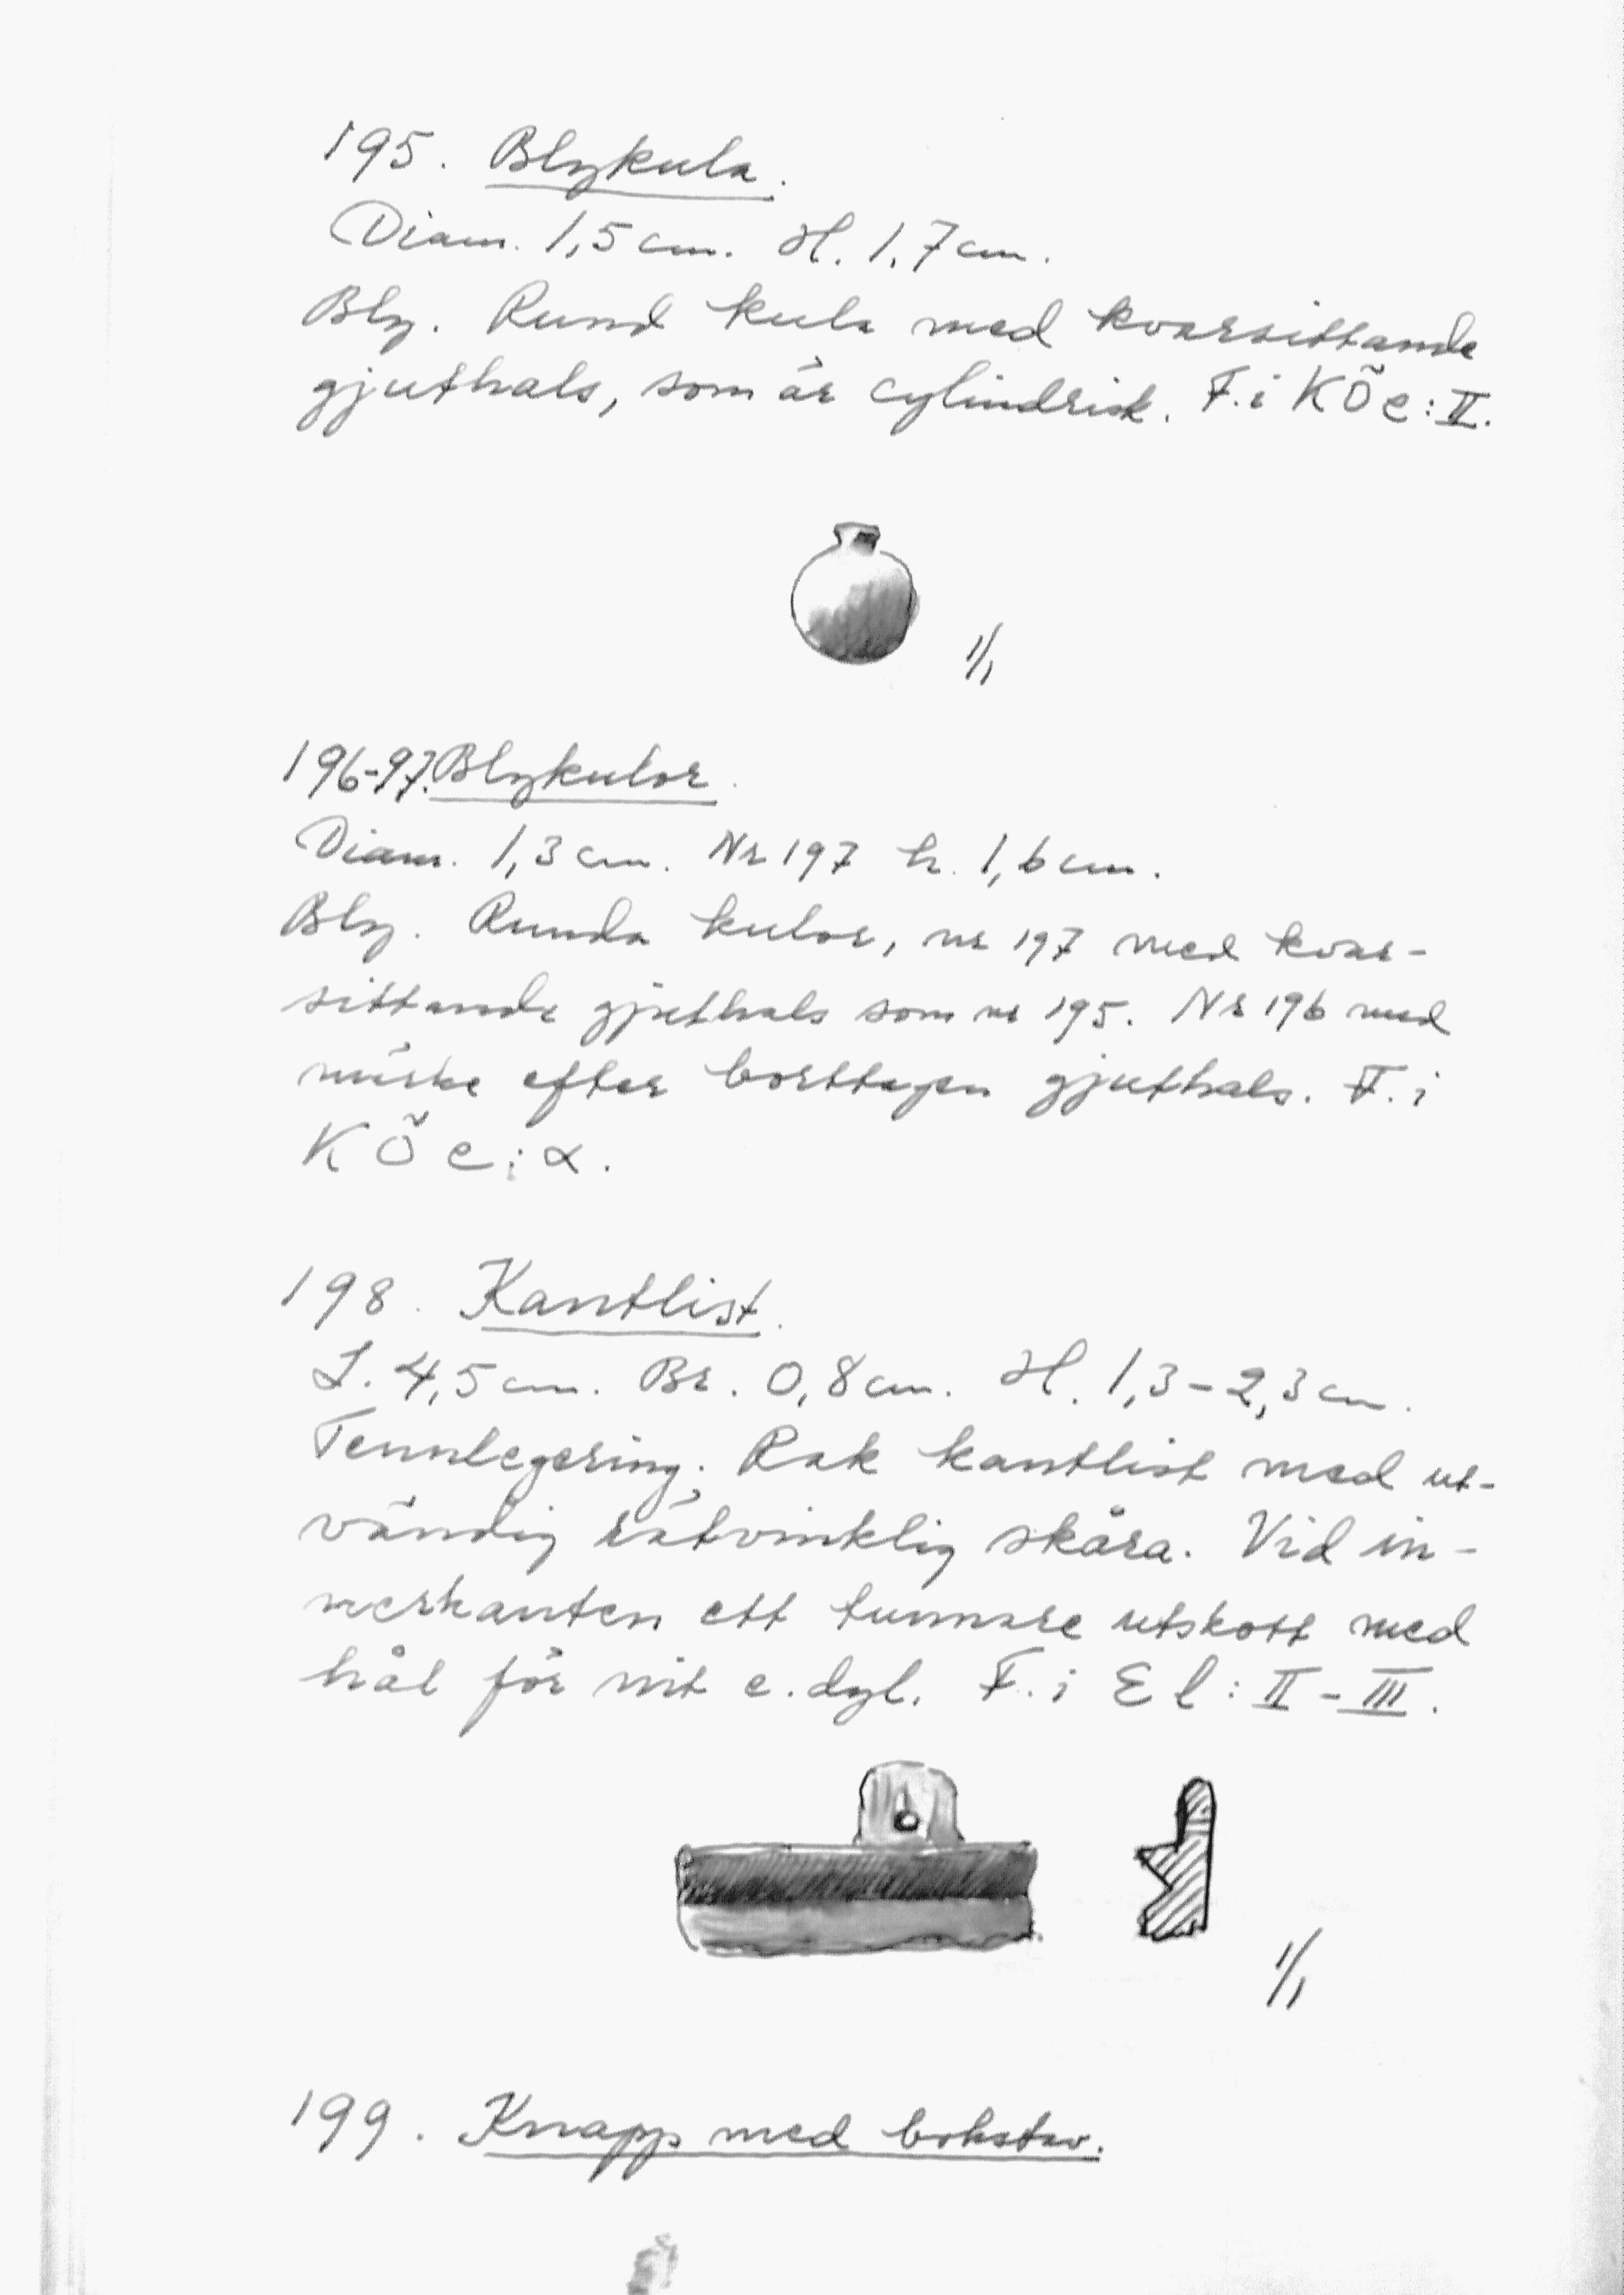 195. Blykula.
Diam. 1,5 cm. H. 1,7 cm.
Bly. Rund kula med kvarsittande
gjuthals, som är cylindrisk. F. i KÕe:II.
1/1
196-97. Blykulor.
Diam. 1,3 cm. Nr 197 h. 1,6 cm.
Bly. Runda kulor, nr 197 med kvar-
sittande gjuthals som nr 195. Nr 196 med
märke efter borttagen gjuthals. F. i
KÕe:α.
198. Kantlist.
L. 4,5 cm. Br. 0,8 cm. H. 1,3-2,3 cm.
Tennlegering. Rak kantlist med ut-
vändig rätvinklig skåra. Vid in-
nerkanten ett tunnare utskott med
hål för nit e. dyl. F. i El:II-III.
1/1
199. Knapp med bokstav.